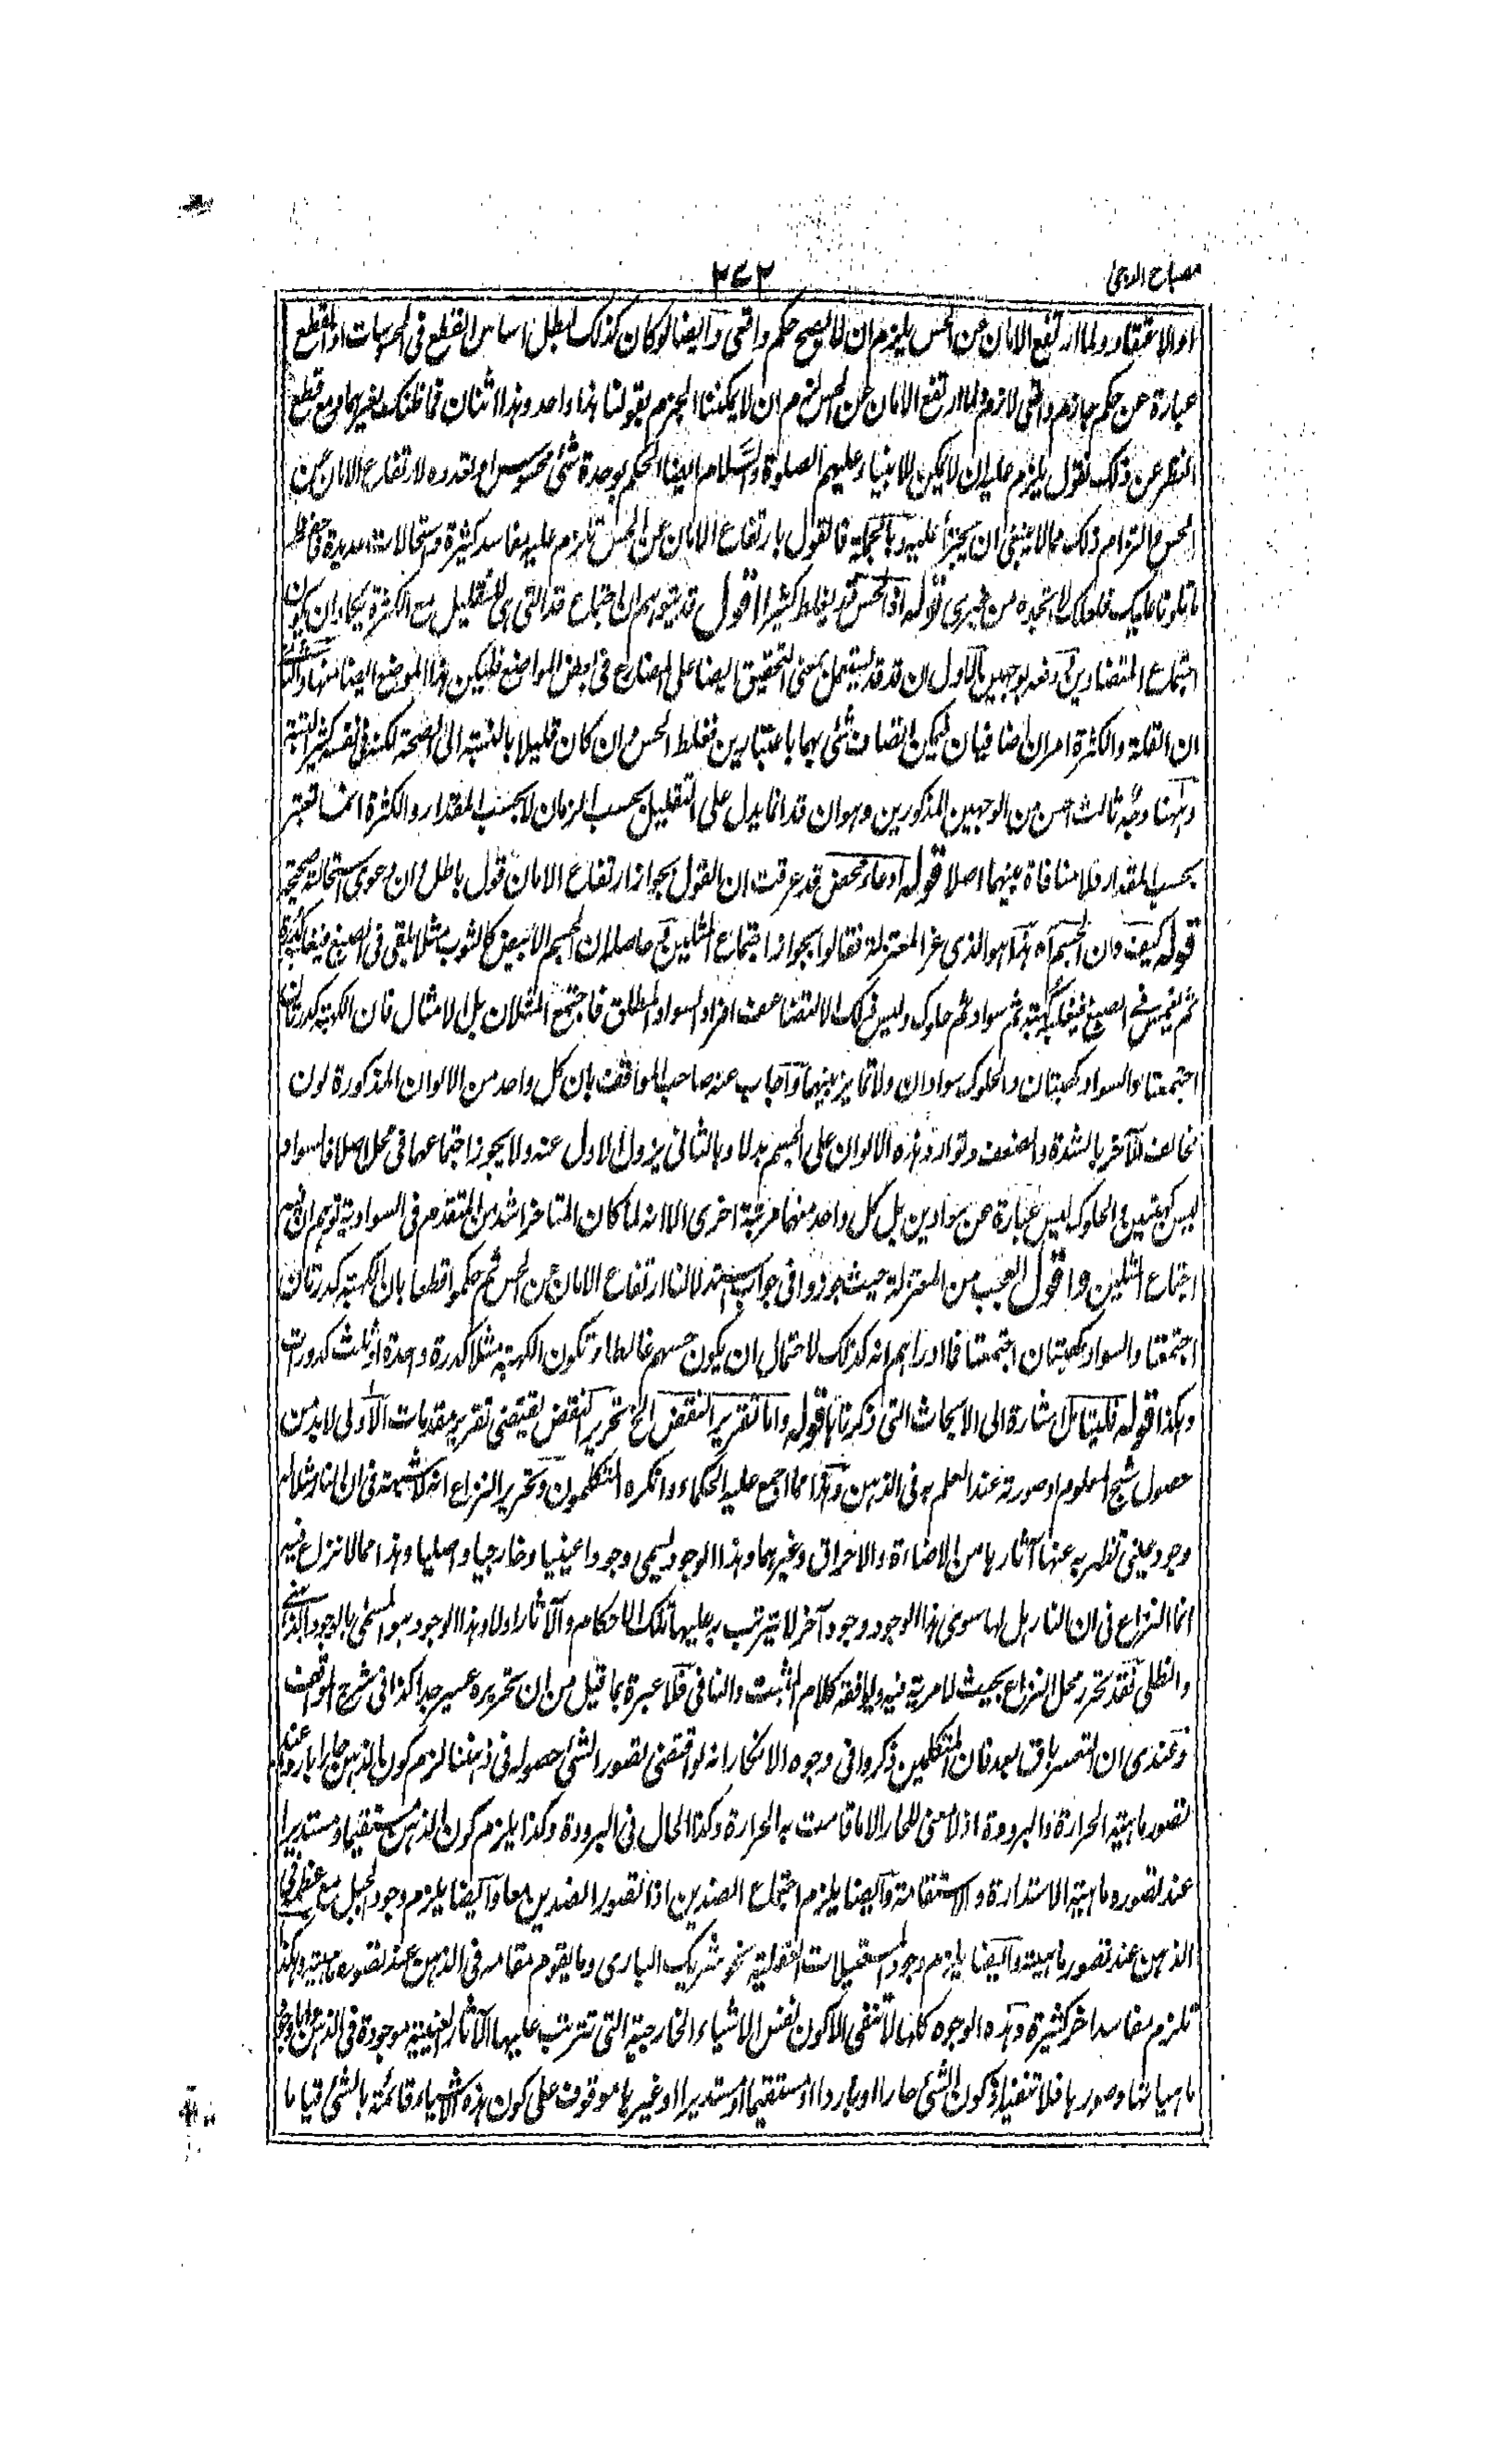 مصباح الدجى
٢٤٢
او الاعتقاد ولما ارتفع الامان عن الحس يلزم ان لا يصح حكم واقعى وايضا لو كان كذلك لبطل اساس القطع فى المحسوسات اذ القطع
عبارة عن حكم جازم واقعى لازم ولما ارتفع الامان عن الحس لزم ان لا يمكننا الجزم بقولنا هذا واحد وهذا اثنان فما ظنك بغيرهما ومع قطع
النظر عن ذلك نقول يلزم عليه ان لا يمكن للانبياء عليهم الصلوة والسلام ايضا الحكم بوحدة شئ محسوس او تعدده لارتفاع الامان عن
الحس والتزام ذلك مما لا ينبغى ان يجترأ عليه وبالجملة فالقول بارتفاع الامان عن الحس تلزم عليه مفاسد كثيرة واستحالات عديدة فاحفظ
ما تلونا عليك فلعلك لا تجده من غيرى قوله اذ الحس قد يغلط كثيرا اقول قد يتوهم ان اجتماع قد التى هى للتقليل مع الكثرة يكاد ان يكون
اجتماع المتضادين وآدفعه بوجهين الاول ان قد قد يستعمل بمعنى التحقيق ايضا على المضارع فى بعض المواضع فليكن هذا الموضع ايضا منها والثانى
ان القلة والكثرة امران اضافيان يمكن اتصاف شئ بهما باعتبارين فغلط الحس وان كان قليلا بالنسبة الى الصحة لكنه فى نفسه كثير البتة
وههنا وجه ثالث احسن من الوجهين المذكورين وهو ان قد انما يدل على التقليل بحسب الزمان لا بحسب المقدار والكثرة انما تعتبر
بحسب المقدار فلا منافاة بينهما اصلا قوله ادعاء محض قد عرفت ان القول بجواز ارتفاع الامان قول باطل وان دعوى استحالته صحيحة
قوله كيف وان الجسم آه هذا هو الذى غر المعتزلة فقالوا بجواز اجتماع المثلين حاصله ان الجسم الابيض كالثوب مثلا يلقى فى الصبغ فيغلب كدرة
ثم يغمس فى الصبغ فيغلب كهبة ثم سواد ثم حلوك وليس ذلك الا لتضاعف افراد السواد المطلق فاجتمع المثلان بل الامثال فان الكهبة كدرتان
اجتمعتا والسواد كهبتان والحلوك سوادان ولا تمايز بينهما واجاب عنه صاحب المواقف بان كل واحد من الالوان المذكورة لون
مخالف للآخر بالشدة والضعف وتوارد هذه الالوان على الجسم بدلا وبالثانى يزول الاول عنه ولا يجوز اجتماعهما فى محل اصلا فالسواد
ليس كهبتين والحلوك ليس عبارة عن سوادين بل كل واحد منهما مرتبة اخرى الا انه لما كان المتاخر اشد من المتقدم فى السوادية توهم ان فيه
اجتماع المثلين واقول العجب من المعتزلة حيث جوزوا فى جواب استدلالنا ارتفاع الامان عن الحس ثم حكموا قطعا بان الكهبة كدرتان
اجتمعتا والسواد كهبتان اجتمعتا فما ادراهم انه كذلك لاحتمال ان يكون حسهم غالطا وتكون الكهبة مثلا كدرة واحدة او ثلث كدورات
وهكذا قوله فليتامل اشارة الى الابحاث التى ذكرناها قوله واما تقرير النقض الخ تحرير النقض يقتضى تقرير مقدمات الاولى لا بد من
حصول شبح المعلوم او صورته عند العلم به فى الذهن وهذا مما اجمع عليه الحكماء وانكره المتكلمون وتحرير النزاع انه لا شبهة فى ان النار مثلا له
وجود عينى تظهر به عنها آثارها من الاضاءة والاحراق وغيرهما وهذا الوجود يسمى وجودا عينيا وخارجيا واصليا وهذا مما لا نزاع فيه
انما النزاع فى ان النار هل لها سوى هذا الوجود وجود آخر لا يترتب به عليها تلك الاحكام والآثار اولا وهذا الوجود هو المسمى بالوجود الذهنى
والظلى فقد تحرر محل النزاع بحيث لا مرية فيه ويوافقه كلام المثبت والنافى فلا عبرة بما قيل من ان تحريره عسير جدا كذا فى شرح المواقف
وعندى ان التعسر باق بعد فان المتكلمين ذكروا فى وجوه الانكار انه لو اقتضى تصور الشئ حصوله فى ذهننا لزم كون الذهن حارا باردا عند
تصور ماهية الحرارة والبرودة اذ لا معنى للحار الا ما قامت به الحرارة وكذا الحال فى البرودة وكذا يلزم كون الذهن مستقيما ومستديرا
عند تصوره ماهية الاستدارة والاستقامة وايضا يلزم اجتماع الضدين اذا تصور الضدين معا وايضا يلزم وجود الجبل مع عظمه فى
الذهن عند تصور ماهيته وايضا يلزم وجود المستحيلات العقلية نحو شريك البارى وما يقوم مقامه فى الذهن عند تصوره ماهيته وهكذا
تلزم مفاسد اخر كثيرة وهذه الوجوه كلها لا تنفى الا كون نفس الاشياء الخارجية التى تترتب عليها الآثار العينية موجودة فى الذهن واما وجود
ماهياتها وصورها فلا تنفيه اذ كون الشئ حارا او باردا او مستقيما او مستديرا او غيرها موقوف على كون هذه الاشياء قائمة بالشئ قياما